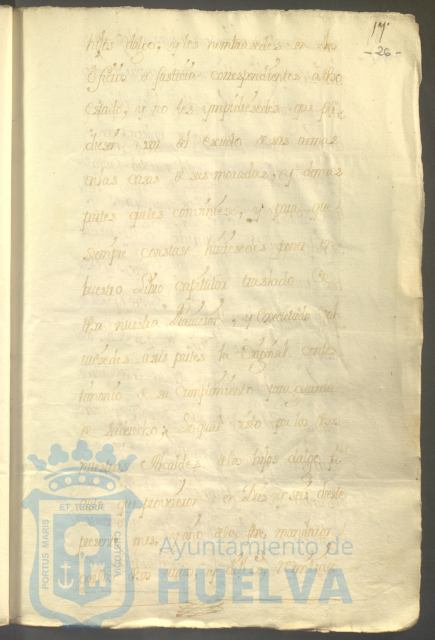 17
-26-
hijos dalgo, y los nombrasedes en los
oficios de justicia correspondientes a dho
estado, y no les ympidiesedes que pu
diesen usar del escudo de sus armas
en las casas de sus moradas, y demas
partes que les combiniese, y para que
siempre constase hiziesedes poner en
buestro Libro capitular traslado de
tra nuestra Provision, y executado vol
viesedes a sus partes la original con tes
timonio de su cumplimiento para guarda
de su derecho; Lo qual visto por los
nuestros Alcaldes de los hijos dalgo
que proveieron en diez y seis de este
presente mes, y año
PORTUS MARIS
ET TERRÆ
CUSTODIA
Ayuntamiento de
HUELVA